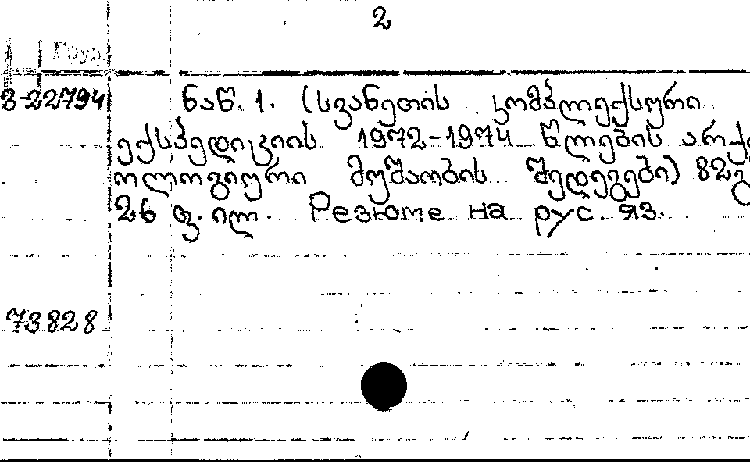 2
3-22794 ნაწ. 1. (სვანეთის კომპლექსური
ექსპედიციის 1972-1974 წლების არქე
ოლოგიური მუშაობის შედეგები) 82გ
26 ფ. ილ. Резюме на рус. яз.
73828